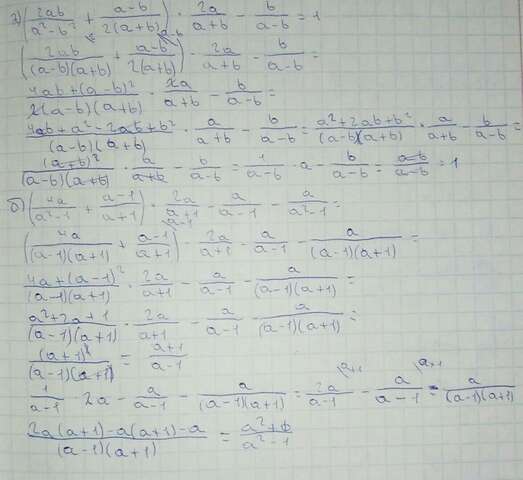 а) (2ab/(a²-b²) + (a-b)/(2(a+b))) · 2a/(a+b) - b/(a-b) = 1
(2ab/((a-b)(a+b)) + (a-b)/(2(a+b))) · 2a/(a+b) - b/(a-b) =
(4ab+(a-b)²)/(2(a-b)(a+b)) · 2a/(a+b) - b/(a-b) =
(4ab+a²-2ab+b²)/((a-b)(a+b)) · a/(a+b) - b/(a-b) = (a²+2ab+b²)/((a-b)(a+b)) · a/(a+b) - b/(a-b) =
(a+b)²/((a-b)(a+b)) · a/(a+b) - b/(a-b) = 1/(a-b) · a - b/(a-b) = (a-b)/(a-b) = 1
б) (4a/(a²-1) + (a-1)/(a+1)) · 2a/(a+1) - a/(a-1) - a/(a²-1) =
(4a/((a-1)(a+1)) + (a-1)/(a+1)) · 2a/(a+1) - a/(a-1) - a/((a-1)(a+1)) =
(4a+(a-1)²)/((a-1)(a+1)) · 2a/(a+1) - a/(a-1) - a/((a-1)(a+1)) =
(a²+2a+1)/((a-1)(a+1)) · 2a/(a+1) - a/(a-1) - a/((a-1)(a+1)) =
(a+1)²/((a-1)(a+1)) = (a+1)/(a-1)
1/(a-1) · 2a - a/(a-1) - a/((a-1)(a+1)) = 2a/(a-1) - a/(a-1) - a/((a-1)(a+1))
(2a(a+1)-a(a+1)-a)/((a-1)(a+1)) =